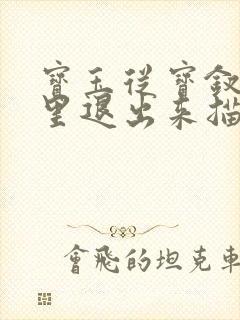 寶玉從寶釵
里退出來描
會飛的坦克車